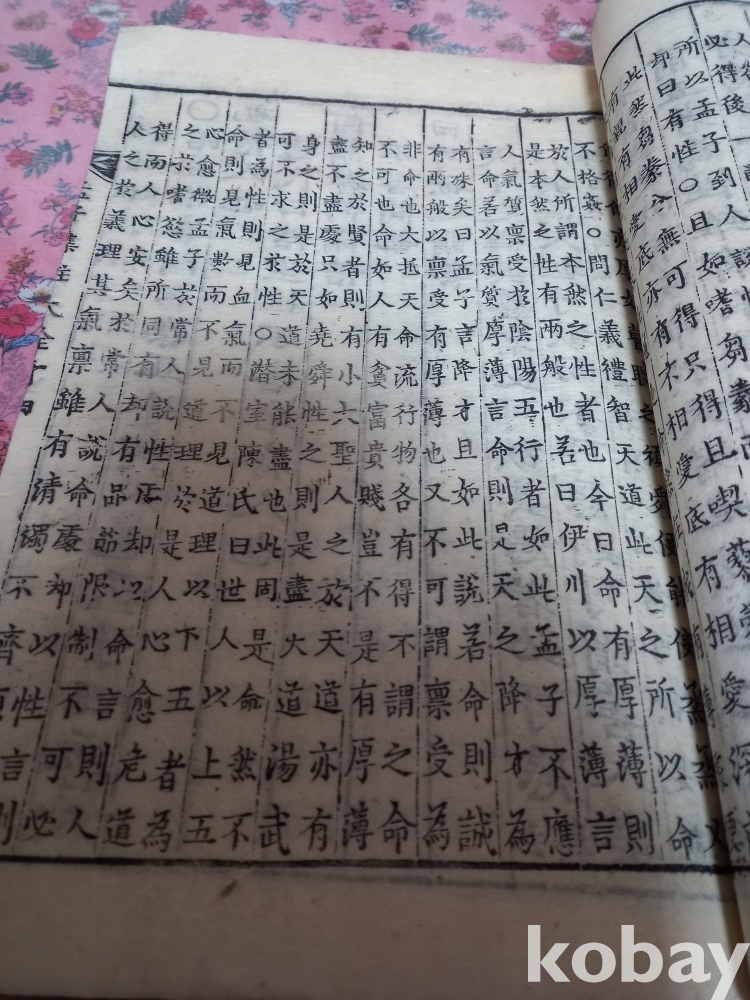 必得後一
所以孟子到人
卬曰有性○且如嗜芻豢
不格姦○問仁義禮智天道此天之所以命
於人所謂本然之性者也今曰命有厚薄則
是本然之性有兩般也若曰伊川以厚薄言
人氣質稟受於陰陽五行者如此孟子不應
言命若以氣質厚薄言命則是天之降才為
有殊矣曰孟子言降才且如此說若命則誠
有兩般以稟受有厚薄也又不可謂稟受為
非命也大抵天命流行物各有得不謂之命
不可也命如人有貧富貴賤豈不是有厚薄
知之於賢者則有小大聖人之於天道亦有
盡不盡處只如堯舜性之則是盡大道湯武
身之則是於天道未能盡也此固是命然不
可不求之求性○潛室陳氏曰世人以上五
者為性則見血氣而不見道理以下五者為
命則見氣數而不見道理於是人心愈危道
心愈微孟子於常人說性處却以命言則人
之於嗜慾雖所同有却有品節限制不可必
得而人心安矣於常人說命處却以性言則
人之於義理其氣稟雖有清濁不齊
孟子集註大全十四
kobay